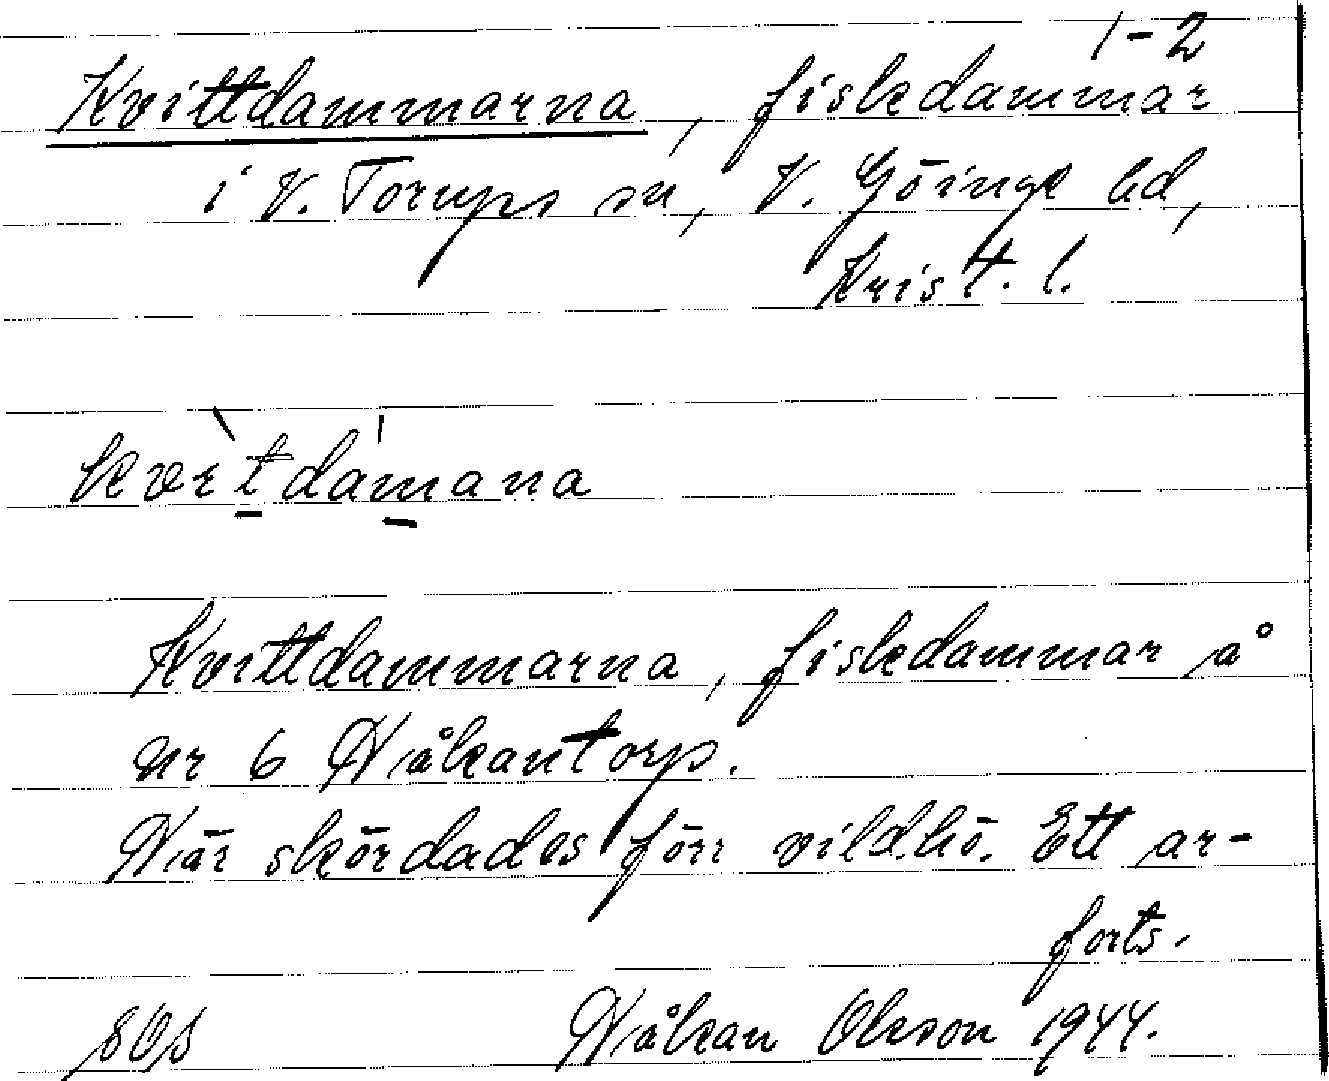 1-2
Kvittdammarna, fiskdammar
i V. Torups sn, V. Göinge hd,
Krist. l.
kvìtdámana
Kvittdammarna, fiskdammar å
nr 6 Håkantorp.
Här skördades förr vildhö. Ett ar-
forts.
Håkan Olsson 1944.